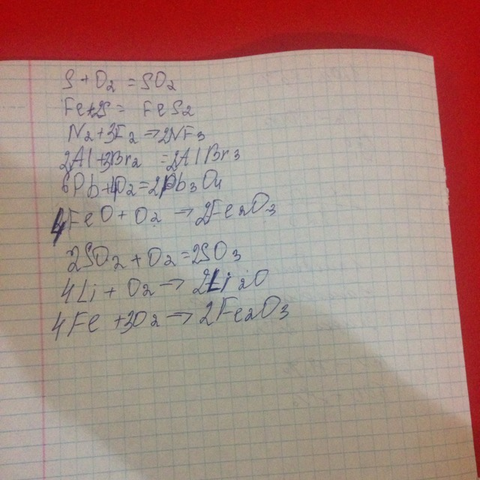 S + O₂ = SO₂
Fe + 2S = FeS₂
N₂ + 3F₂ → 2NF₃
2Al + 3Br₂ = 2AlBr₃
6Pb + 4O₂ = 2Pb₃O₄
4FeO + O₂ → 2Fe₂O₃
2SO₂ + O₂ = 2SO₃
4Li + O₂ → 2Li₂O
4Fe + 3O₂ → 2Fe₂O₃